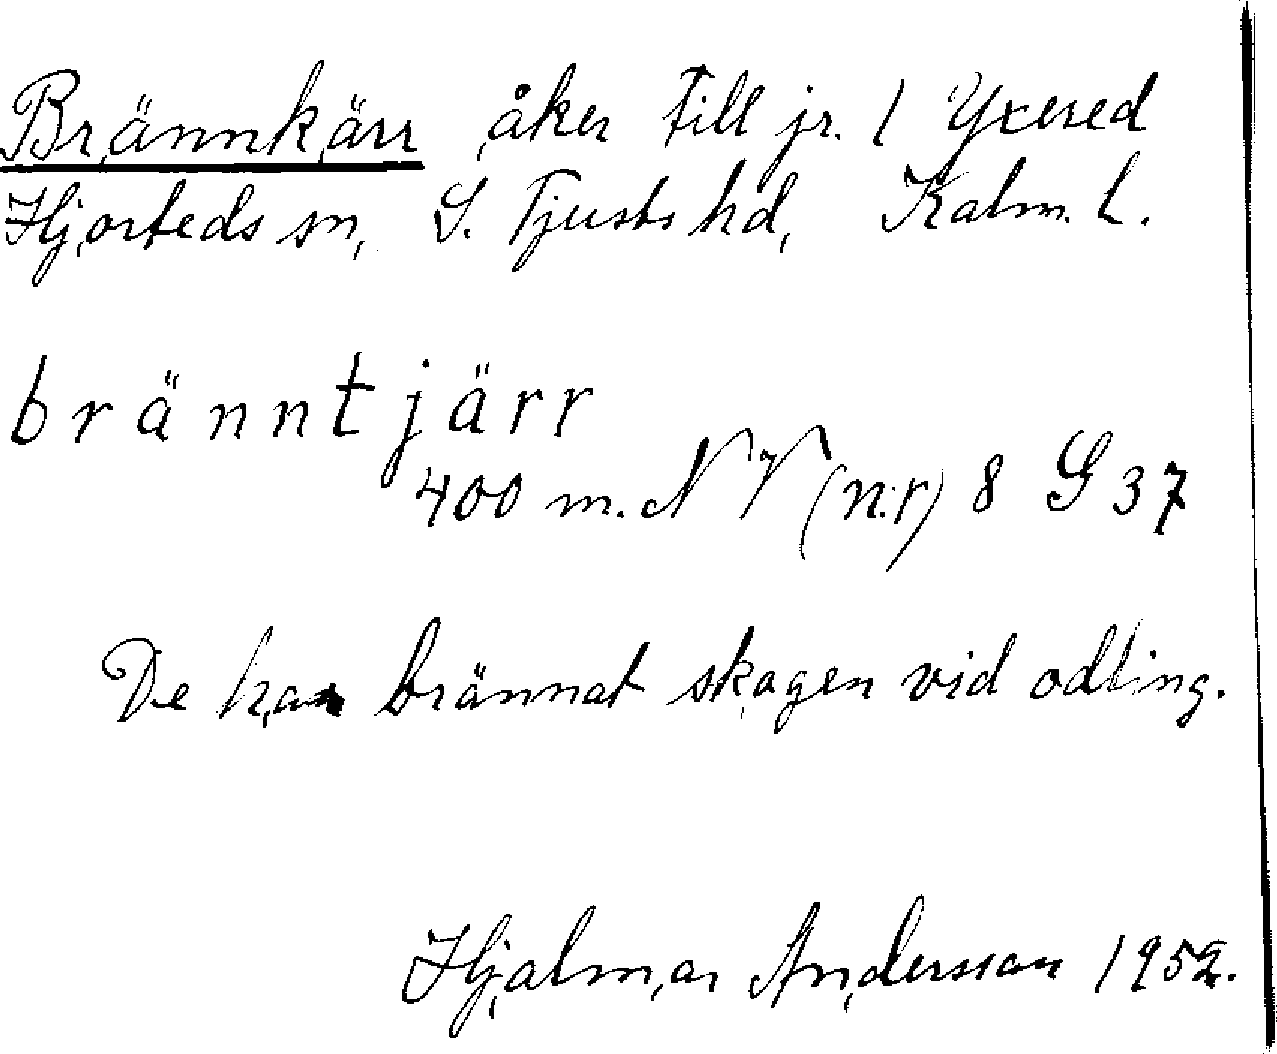 Brännkärr åker till jr. 1 Yxered
Hjorteds sn, S. Tjusts hd, Kalm. L.
bränntjärr
400 m. NV (n:r) 8 G 37
De har brännat skogen vid odling.
Hjalmar Andersson 1952.